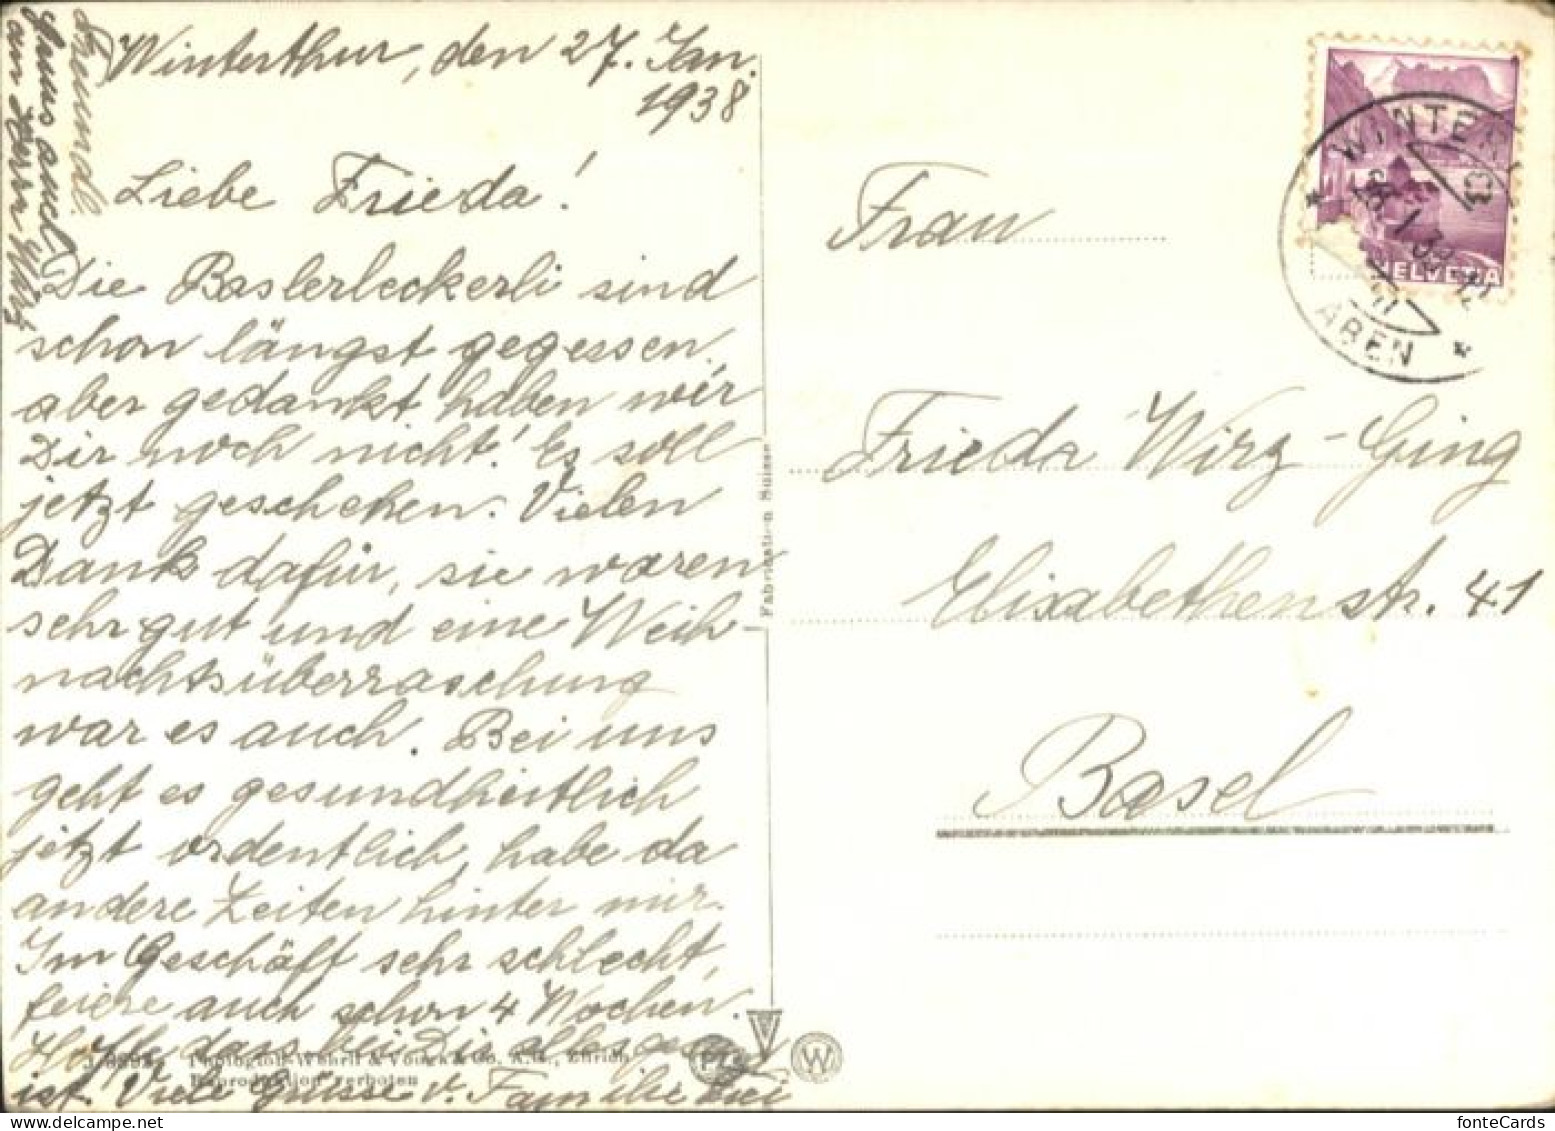 Winterthur, den 27. Jan.
1938
Liebe Frieda!
Die Baslerleckerli sind
schon längst gegessen
aber gedankt haben wir
Dir noch nicht! Es soll
jetzt geschehen. Vielen
Dank dafür, sie waren
sehr gut und eine Weih
nachtsüberraschung
war es auch. Bei uns
geht es gesundheitlich
jetzt ordentlich, habe da
andere Zeiten hinter mir.
Im Geschäft sehr schlecht,
feiere auch schon 4 Wochen.
Hoffe, dass bei Dir alles
ist. Viele Grüsse v. Familie
Gruss auch
an Herrn Wirz
Frau
Frieda Wirz-Ging
Elisabethenstr. 41
Basel
HELVETIA
WINTER
ABEN
Fabrication Suisse
Photoglob-Wehrli & Vouga & Co. A.G., Zürich
Reproduktion verboten
W
fonteCards